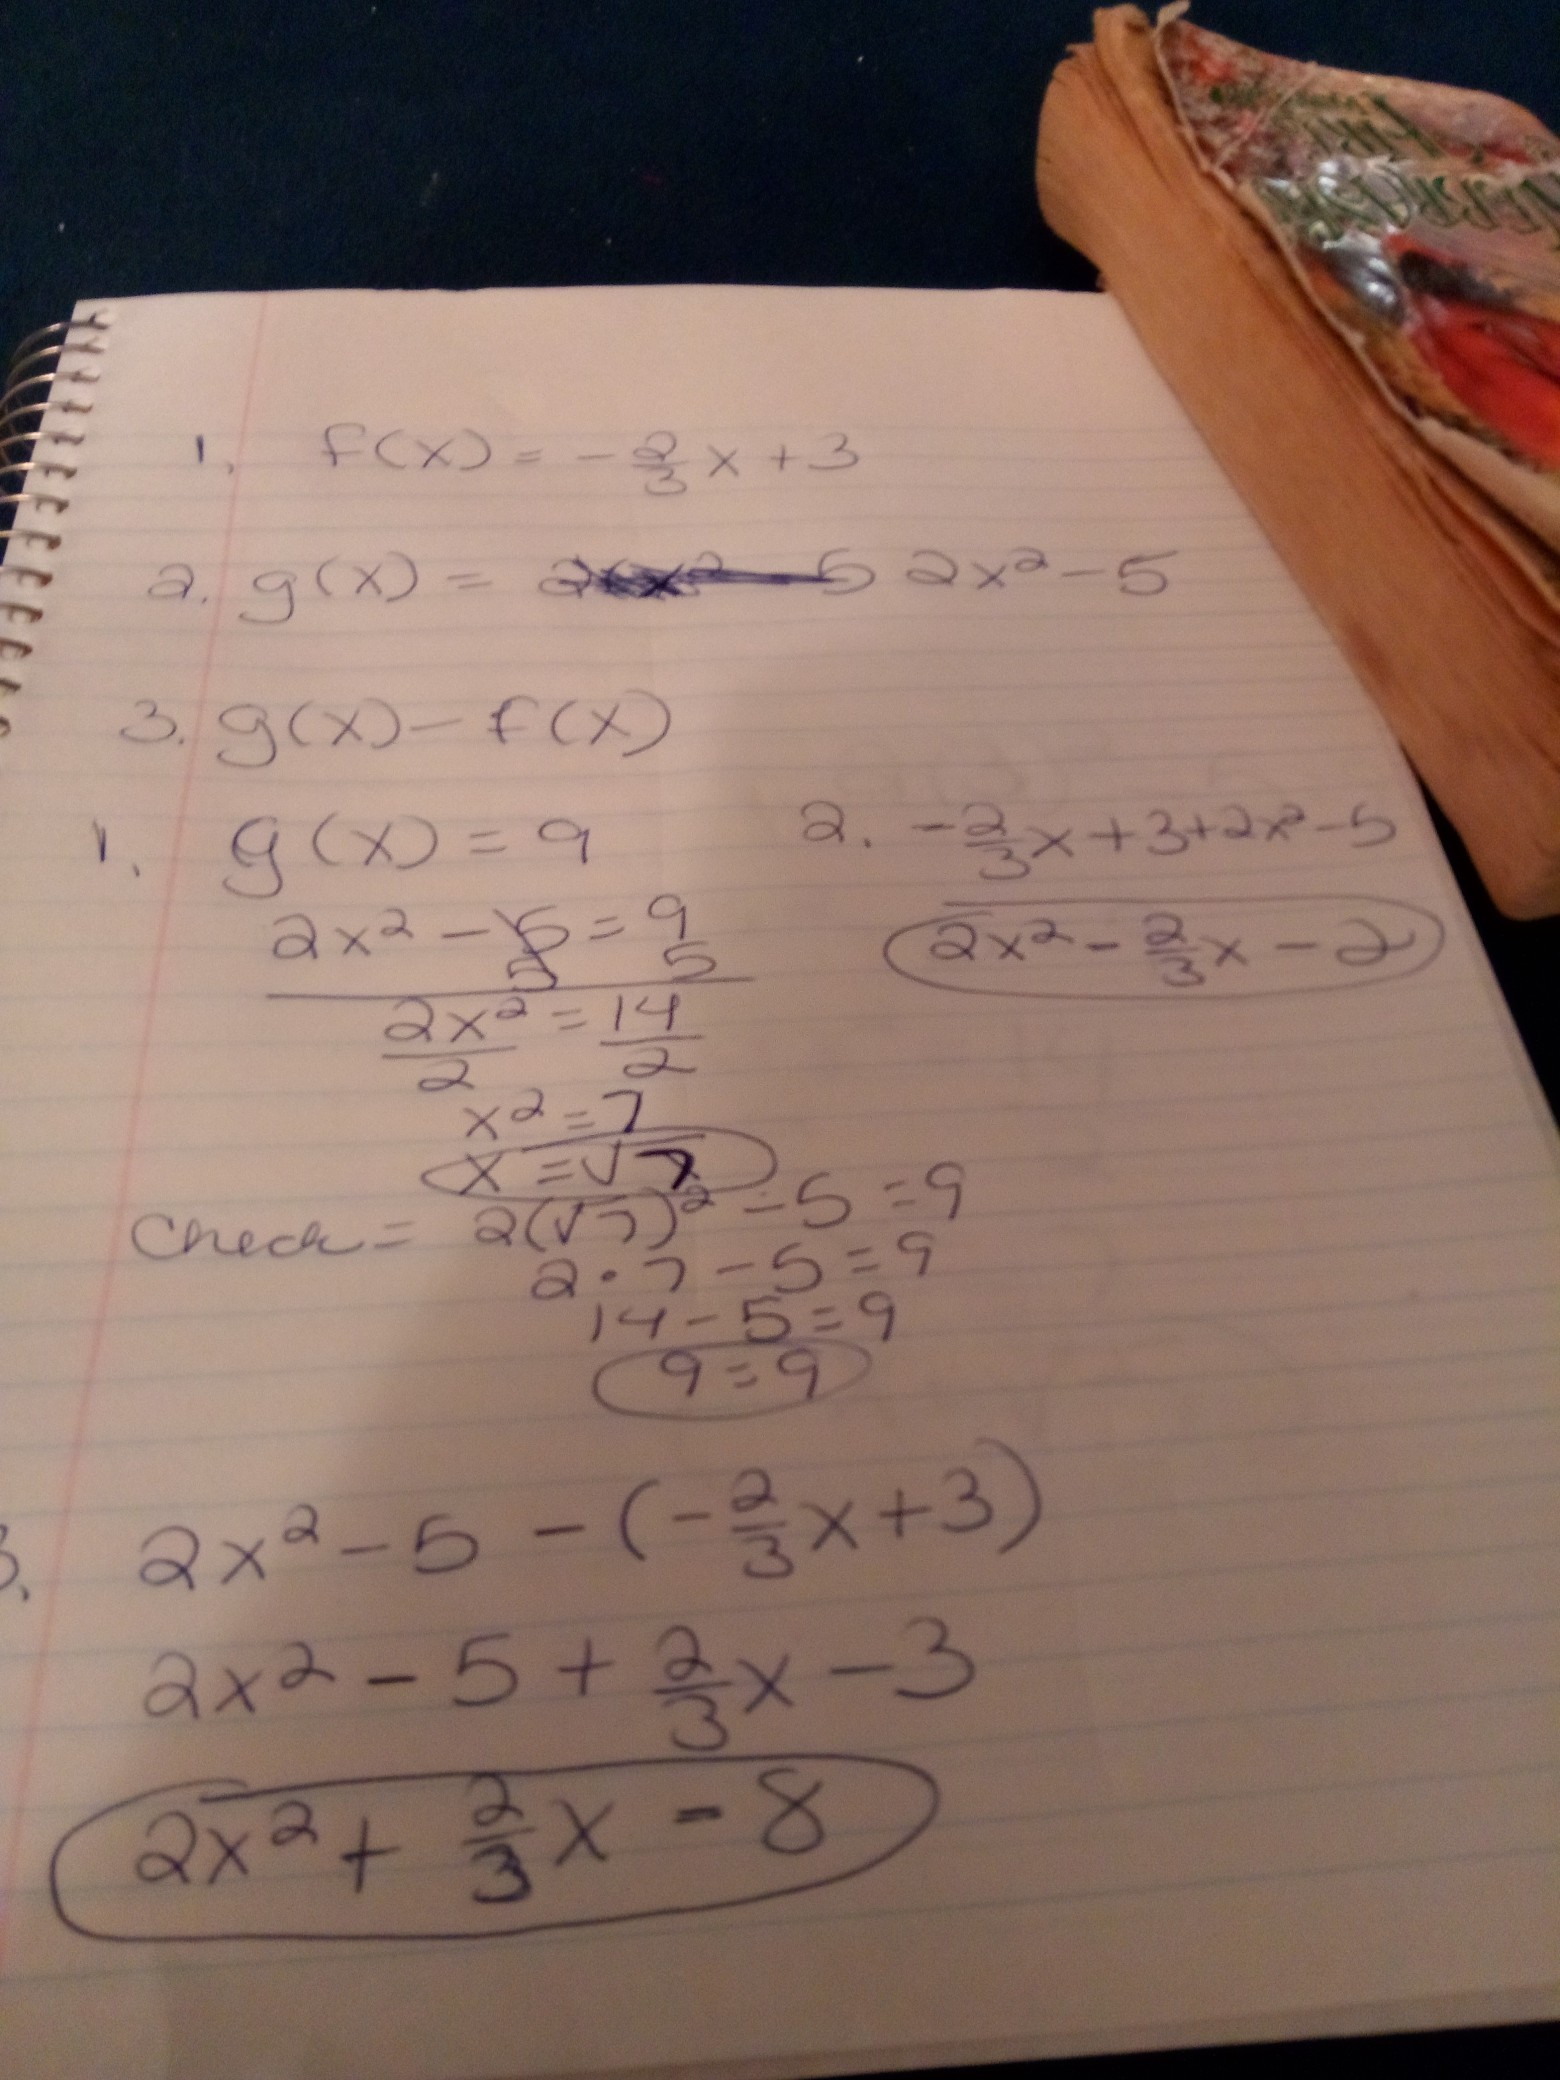 1. f(x) = -2/3 x + 3
2. g(x) = 2x² - 5
3. g(x) - f(x)
1. g(x) = 9
2x² - 5 = 9
5 5
2x²/2 = 14/2
x² = 7
x = √7
Check = 2(√7)² - 5 = 9
2 · 7 - 5 = 9
14 - 5 = 9
9 = 9
2. -2/3 x + 3 + 2x² - 5
2x² - 2/3 x - 2
3. 2x² - 5 - (-2/3 x + 3)
2x² - 5 + 2/3 x - 3
2x² + 2/3 x - 8